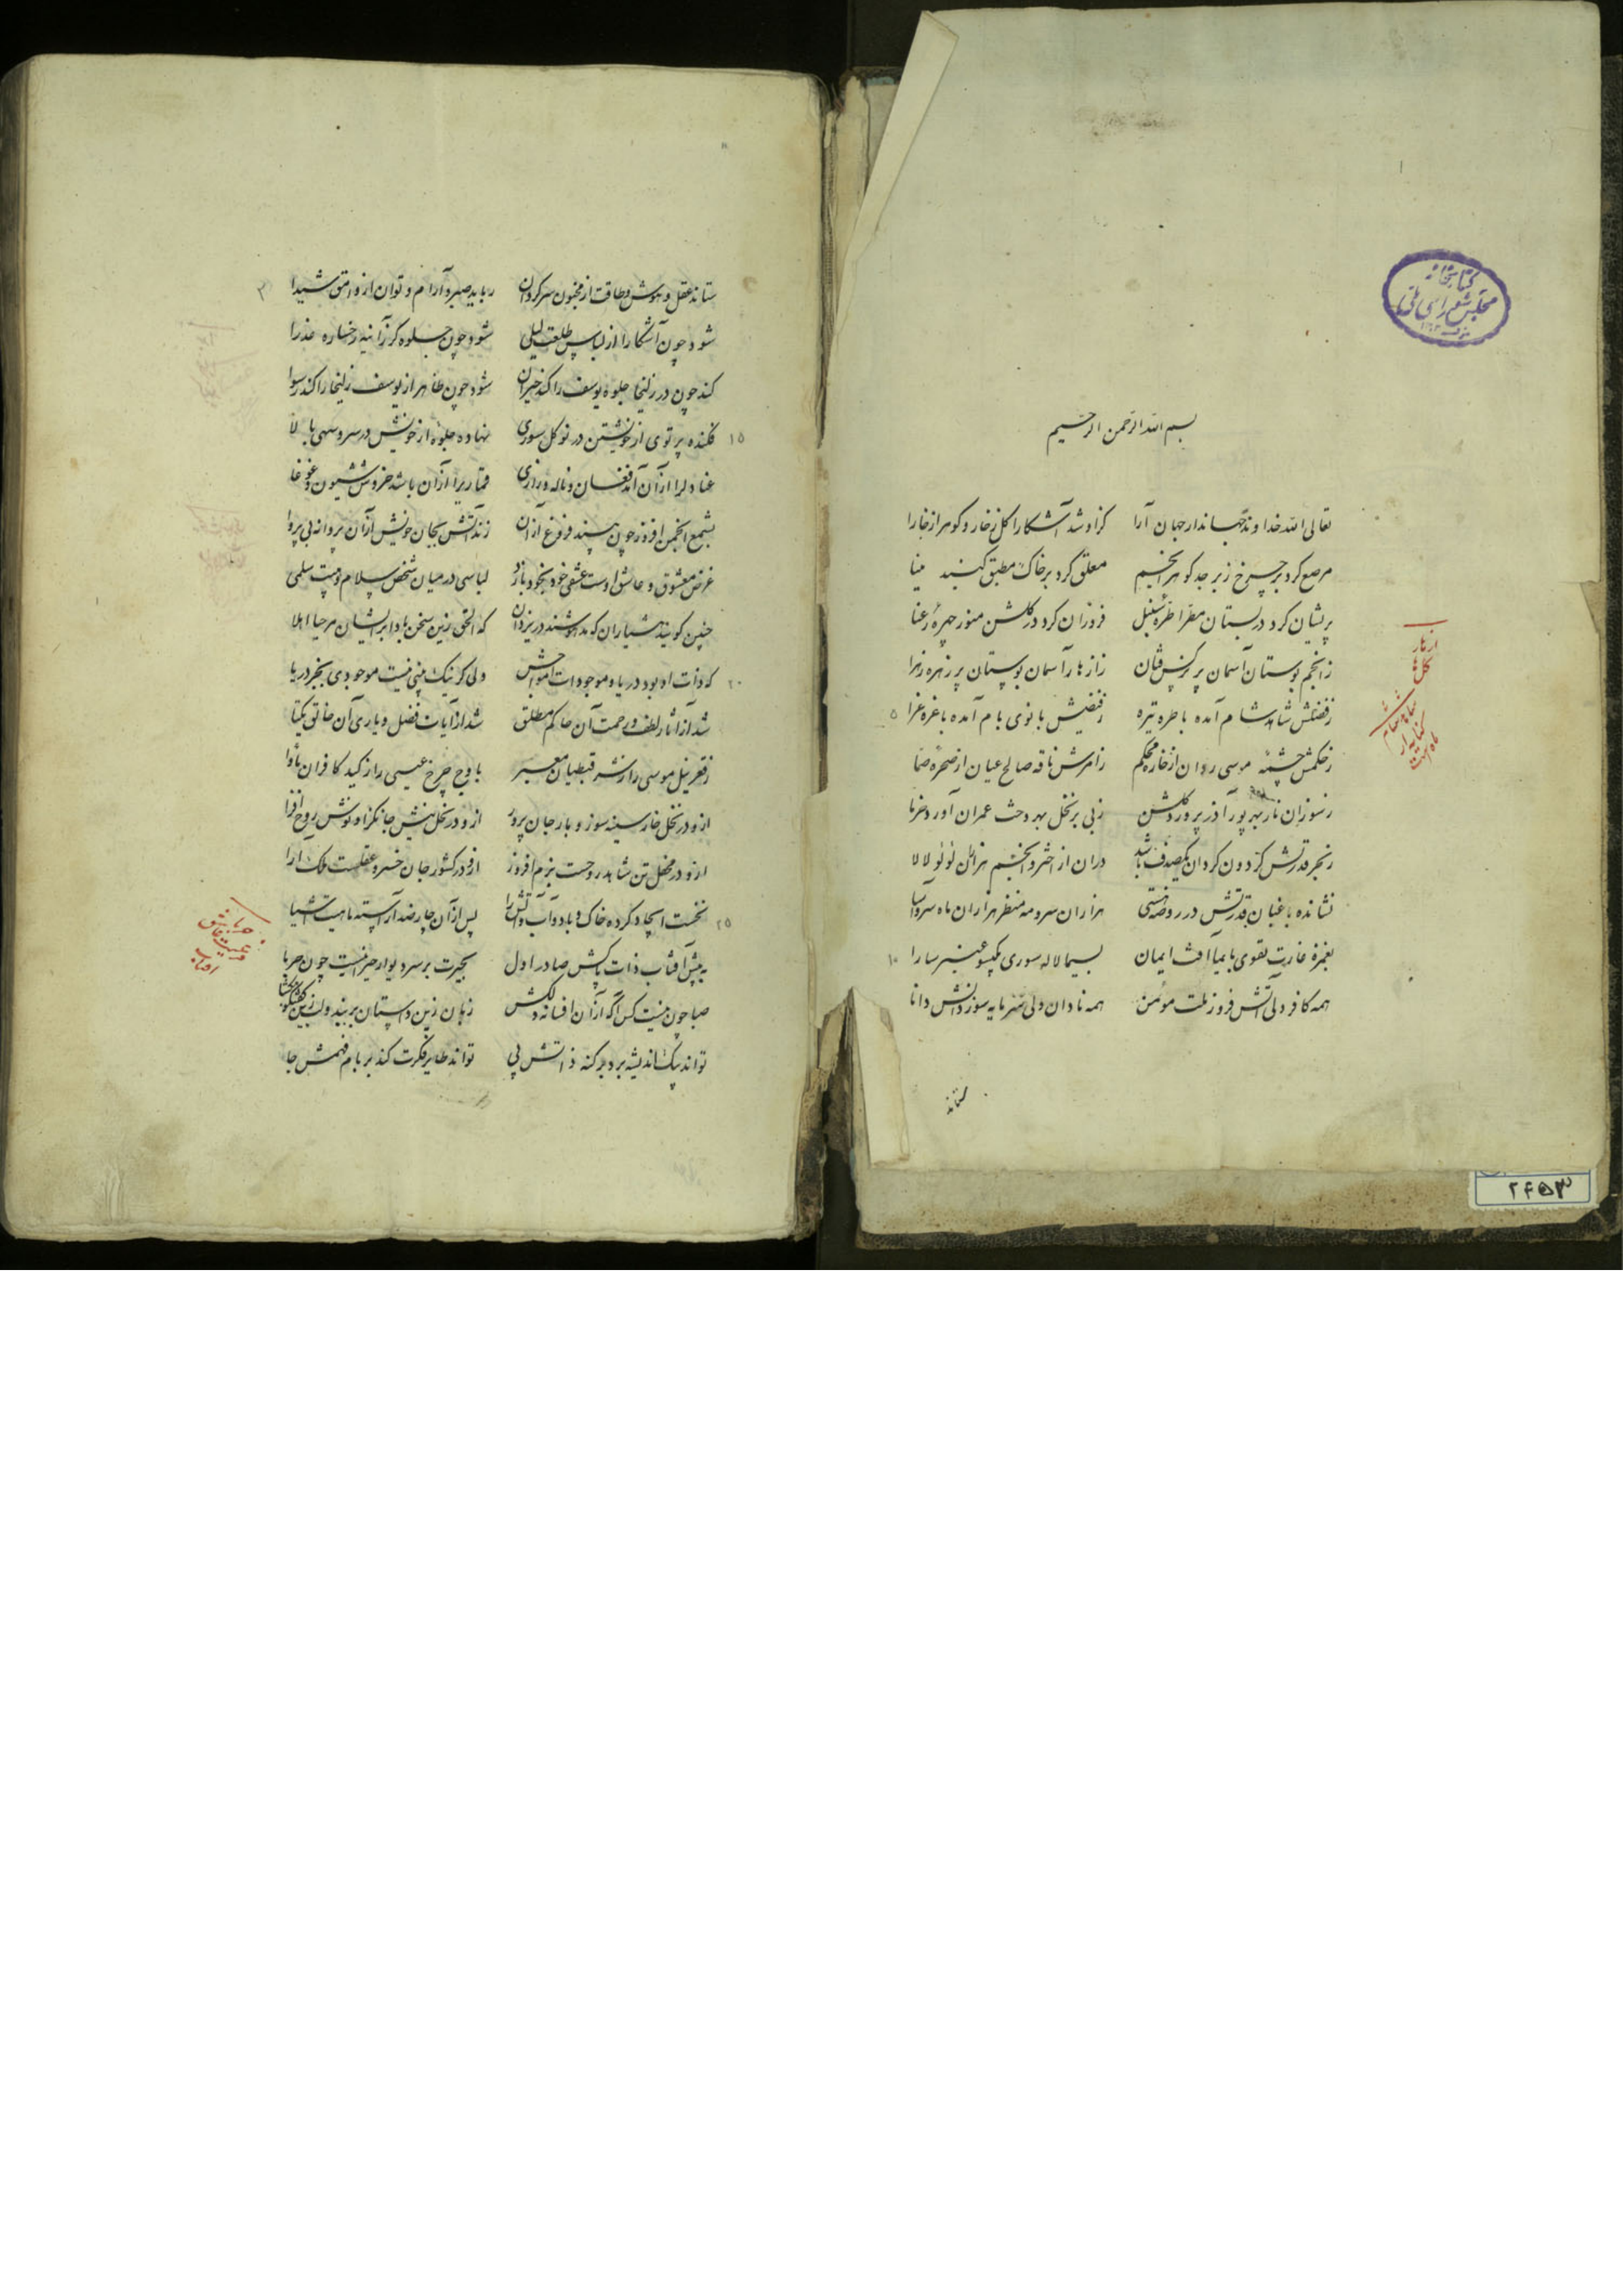 کتابخانه
مجلس شورای ملی
بسم الله الرحمن الرحیم
تعالی الله خداوند جهاندار جهان آرا کزاو شد آشکارا کل ز خار و کوهر از خارا
مرصع کرد بر چرخ زبرجد کوهر انجم معلق کرد بر خاک مطبق کنبد مینا
پریشان کرد در بستان مطرا طره سنبل فروزان کرد در کلشن منور چهره رعنا
ز انجم بوستان آسمان پر نرکس فتان ز ازهار آسمان بوستان پر زهره زهرا
ز فضلش شاهد شام آمده با طره تیره ز فیضش بانوی بام آمده با غره غرا
۵
ز حکمش چشمه موسی روان از خاره محکم ز امرش ناقه صالح عیان از صخره صما
ز سوزان نار بهر پور آذر پرورد کلشن ز بی بر نخل بهر دخت عمران آورد خرما
ز بحر قدرتش کردون کردان یکصدف باشد در آن از اختر و انجم هزاران لؤلؤ لالا
نشانده باغبان قدرتش در روضه هستی هزاران سرو مه منظر هزاران ماه سرو آسا
بغمزه غارت تقوی بایما آفت ایمان بسیما لاله سوری بکیسو عنبر سارا
۱۰
همه کافر ولی آتش فروز ملت مؤمن همه نادان ولی سرمایه سوز دانش دانا
ستاند
ازهار
کلها
شاهد شام
کنایه از
ماه است
۲۶۵۳
۲
ستاند عقل و هوش و طاقت از مجنون سرکردان رباید صبر و آرام و توان از وامق شیدا
شود چون آشکارا از لباس طلعت لیلی شود چون جلوه کر ز آئینه رخساره عذرا
کند چون در زلیخا جلوه یوسف را کند حیران شود چون ظاهر از یوسف زلیخا را کند رسوا
۱۵
فکنده پرتوی از خویشتن در نو کل سوری نهاده جلوهٔ از خویش در سرو سهی بالا
عنادلرا از آن آمد فغان و ناله و زاری قماریرا از آن باشد خروش و شیون و غوغا
بشمع انجمن افروز چون بیند فروغ آن زند آتش بجان خویش از آن پروانه بی پروا
غرض معشوق و عاشق اوست عشق خود بخود بازد لباسی در میان شخص سلام و میت سلمی
چنین کویند هشیاران که مدهوشند در یزدان که الحق زین سخن بادا بر ایشان مرحبا اهلا
۲۰
که ذات او بود دریا و موجودات امواجش ولی کر نیک بینی نیست موجودی بجز دریا
شد از آثار لطف و رحمت آن حاکم مطلق شد از آیات فضل و یاری آن خالق یکتا
ز قعر نیل موسی را ز شر قبطیان معبر باوج چرخ عیسی را ز کید کافران ماوا
از و در نخل خار سینه سوز و بار جان پرور از و در نحل نیش جانکزا و نوش روح افزا
از و در محفل تن شاهد روحست بزم افروز از و در کشور جان خسرو عقلست ملک آرا
۲۵
نخست ایجاد کرده خاک و باد و آب و آتش را پس از آن چار ضد آراسته ماهیت اشیا
به پیش آفتاب ذات پاکش صادر اول بحیرت بر سر دیوار حیرانیست چون حربا
صباحی نیست کس آکه از آن افسانه دلکش زبان زین داستان بربند و لب زین کفتکو مکشا
تواند پیک اندیشه برد بر کنه ذاتش پی تواند طایر فکرت کند بر بام فهمش جا
حربا
عاشق
آفتاب